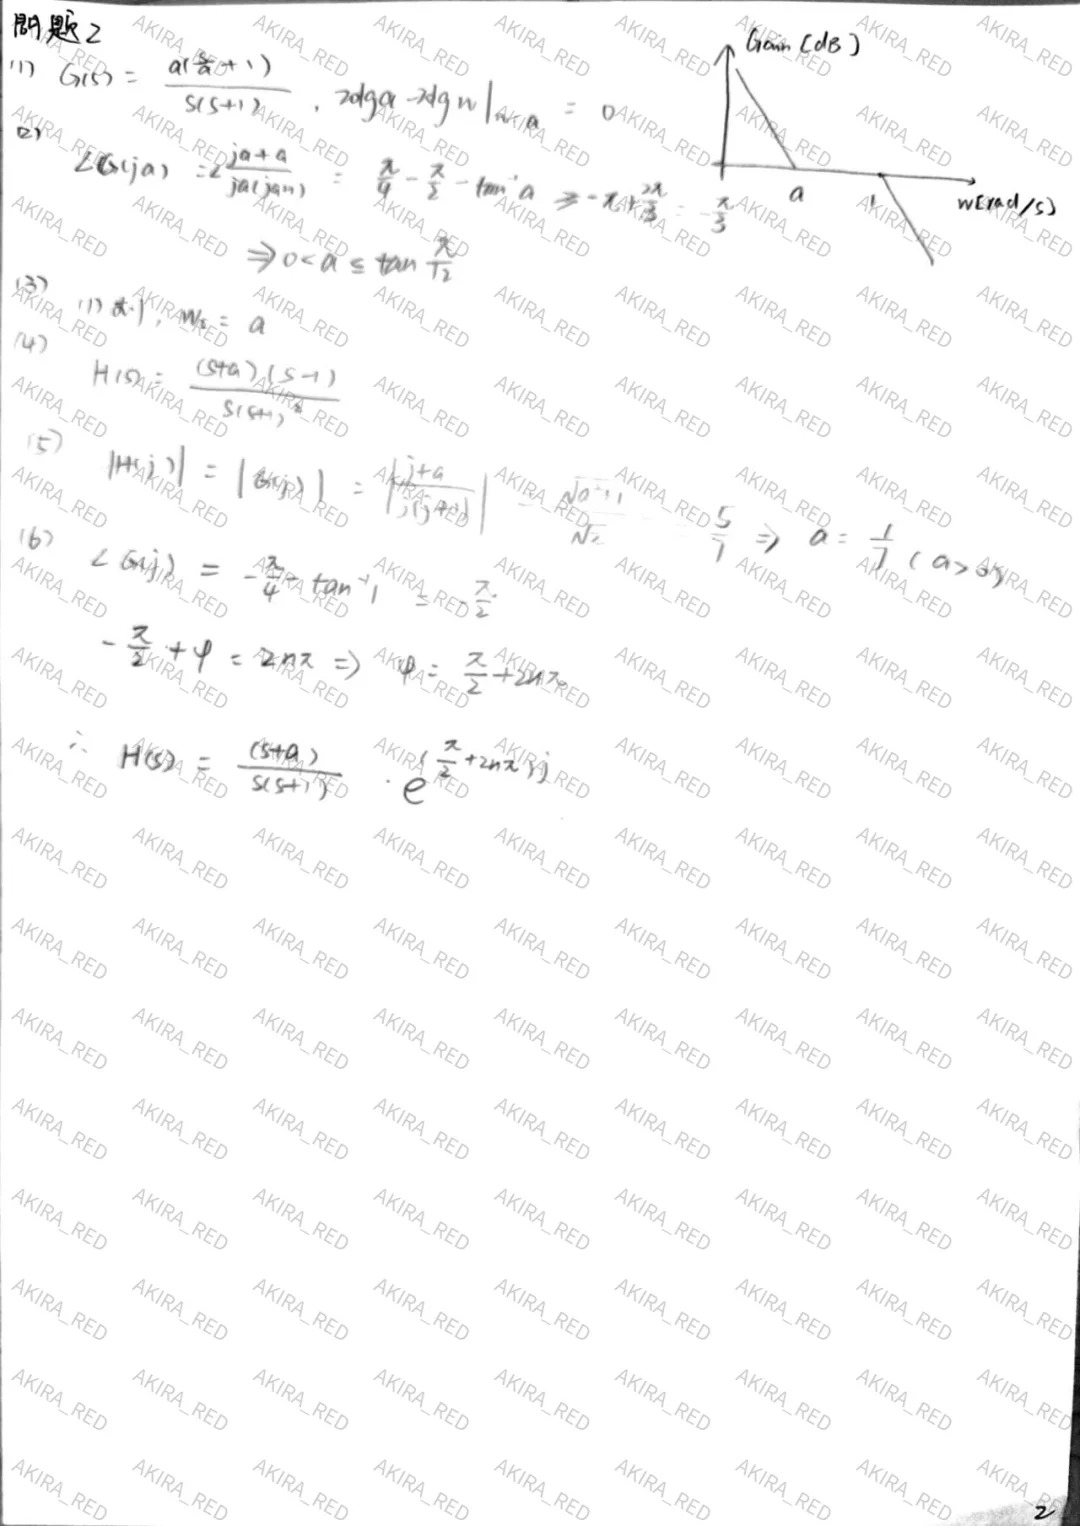 問題2
Gain [dB]
(1) G(s) = a(s/a + 1) / s(s+1) , 20lg a - 20lg w | w=a = 0
a 1 w[rad/s]
(2)
∠G(ja) = ∠ ja+a / ja(ja+1) = π/4 - π/2 - tan⁻¹a ≥ -π + 2π/3 = -π/3
⇒ 0 < a ≤ tan π/12
(3)
(1) より, = a
(4)
H(s) = (s+a)(s-1) / s(s+1)²
(5)
|H(j)| = |G(j)| = | j+a / j(j+1) | = √a²+1 / √2 = 5/7 ⇒ a = 1/7 (a>0)
(6)
∠G(j) = -π/4 - tan⁻¹1 = -π/2
-π/2 + φ = 2nπ ⇒ φ = π/2 + 2nπ
∴ H(s) = (s+a) / s(s+1) · e^(π/2 + 2nπ)j
2
AKIRA_RED